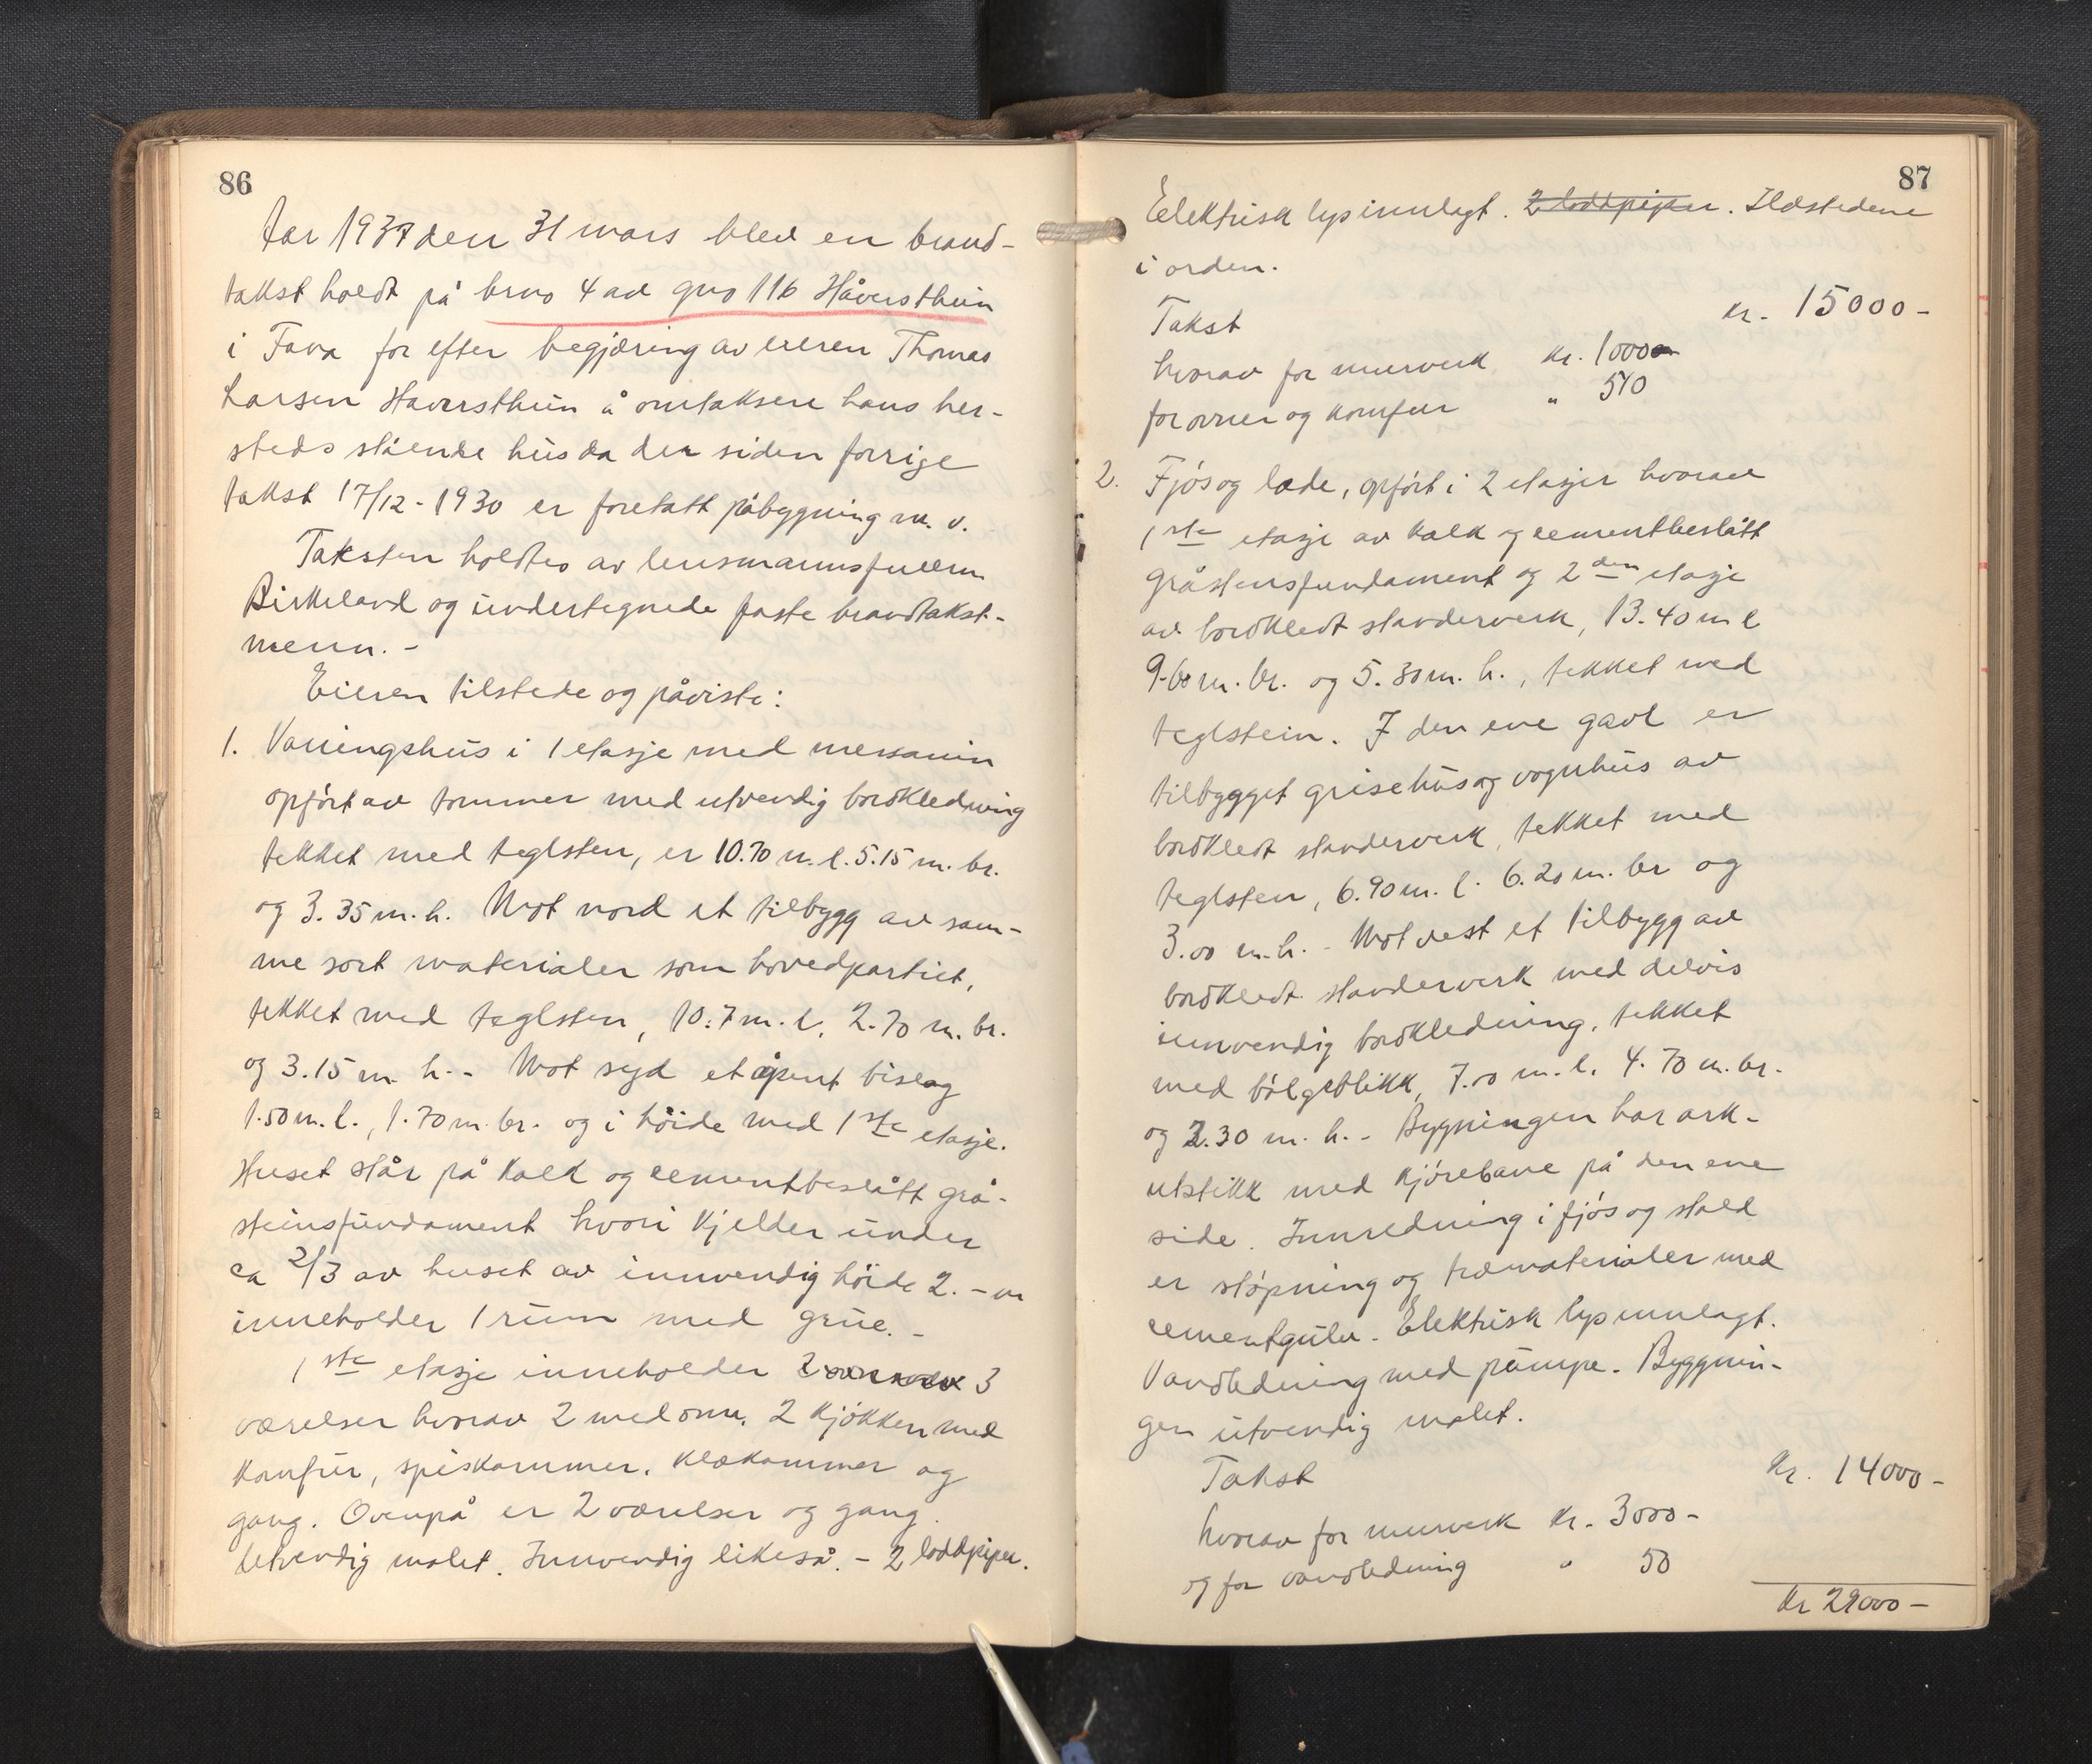 86
Aar 1937 den 31 mars blev en brand-
takst holdt på brno 4 av gno 116 Håversthun
i Fana for efter begjæring av eieren Thomas
Larsen Haversthun å omtaksere hans her-
steds stående hus da der siden forrige
takst 17/12-1930 er foretatt påbygning m. v.
Taksten holdtes av lensmannsfullm.
Birkeland og undertegnede faste brandtakst-
menn. -
Eieren tilstede og påviste:
1. Vaaningshus i 1 etasje med messanin
opført av tømmer med utvendig bordkledning
tekket med teglsten, er 10.70 m. l. 5.15 m. br.
og 3.35 m. h. Mot nord et tilbygg av sam-
me sort materialer som hovedpartiet,
tekket med teglsten, 10.7 m. l. 2.70 m. br.
og 3.15 m. h. - Mot syd et åpent bislag
1.50 m. l., 1.70 m. br. og i höide med 1ste etasje.
Huset står på kalk og cementbeslått grå-
steinsfundament hvori kjelder under
ca 2/3 av huset av innvendig höide 2. - m
inneholder 1 rum med grue. -
1ste etasje inneholder 2 3
værelser hvorav 2 med ovn, 2 kjøkken med
komfur, spiskammer, klækammer og
gang. Ovenpå er 2 værelser og gang.
Utvendig malet. Innvendig likeså. - 2 loddpiper.
87
Elektrisk lys innlagt. 2 loddpiper. Ildstedene
i orden.
Takst kr. 15000 -
hvorav for murverk kr. 1000
for ovner og komfur " 510
2. Fjös og lade, opfört i 2 etasjer hvorav
1ste etasje av kalk og cementbeslått
gråstensfundament og 2den etasje
av bordkledt standerverk, 13.40 m l
9.60 m. br. og 5.30 m. h., tekket med
teglstein. I den ene gavl er
tilbygget grisehus og vognhus av
bordkledt standerverk, tekket med
teglsten, 6.90 m. l. 6.20 m. br og
3.00 m. h. - Mot vest et tilbygg av
bordkledt standerverk med delvis
innvendig bordkledning, tekket
med bölgeblikk, 7.00 m. l. 4.70 m. br.
og 2.30 m. h. - Bygningen har ark-
utstikk med kjörebane på den ene
side. Innredning i fjös og stald
er stöpning og træmaterialer med
cementgulv. Elektrisk lys innlagt.
Vandledning med pumpe. Byggnin-
gen utvendig malet.
Takst kr. 14000 -
hvorav for murverk kr. 3000 -
og for vandledning " 50
kr 29000 -